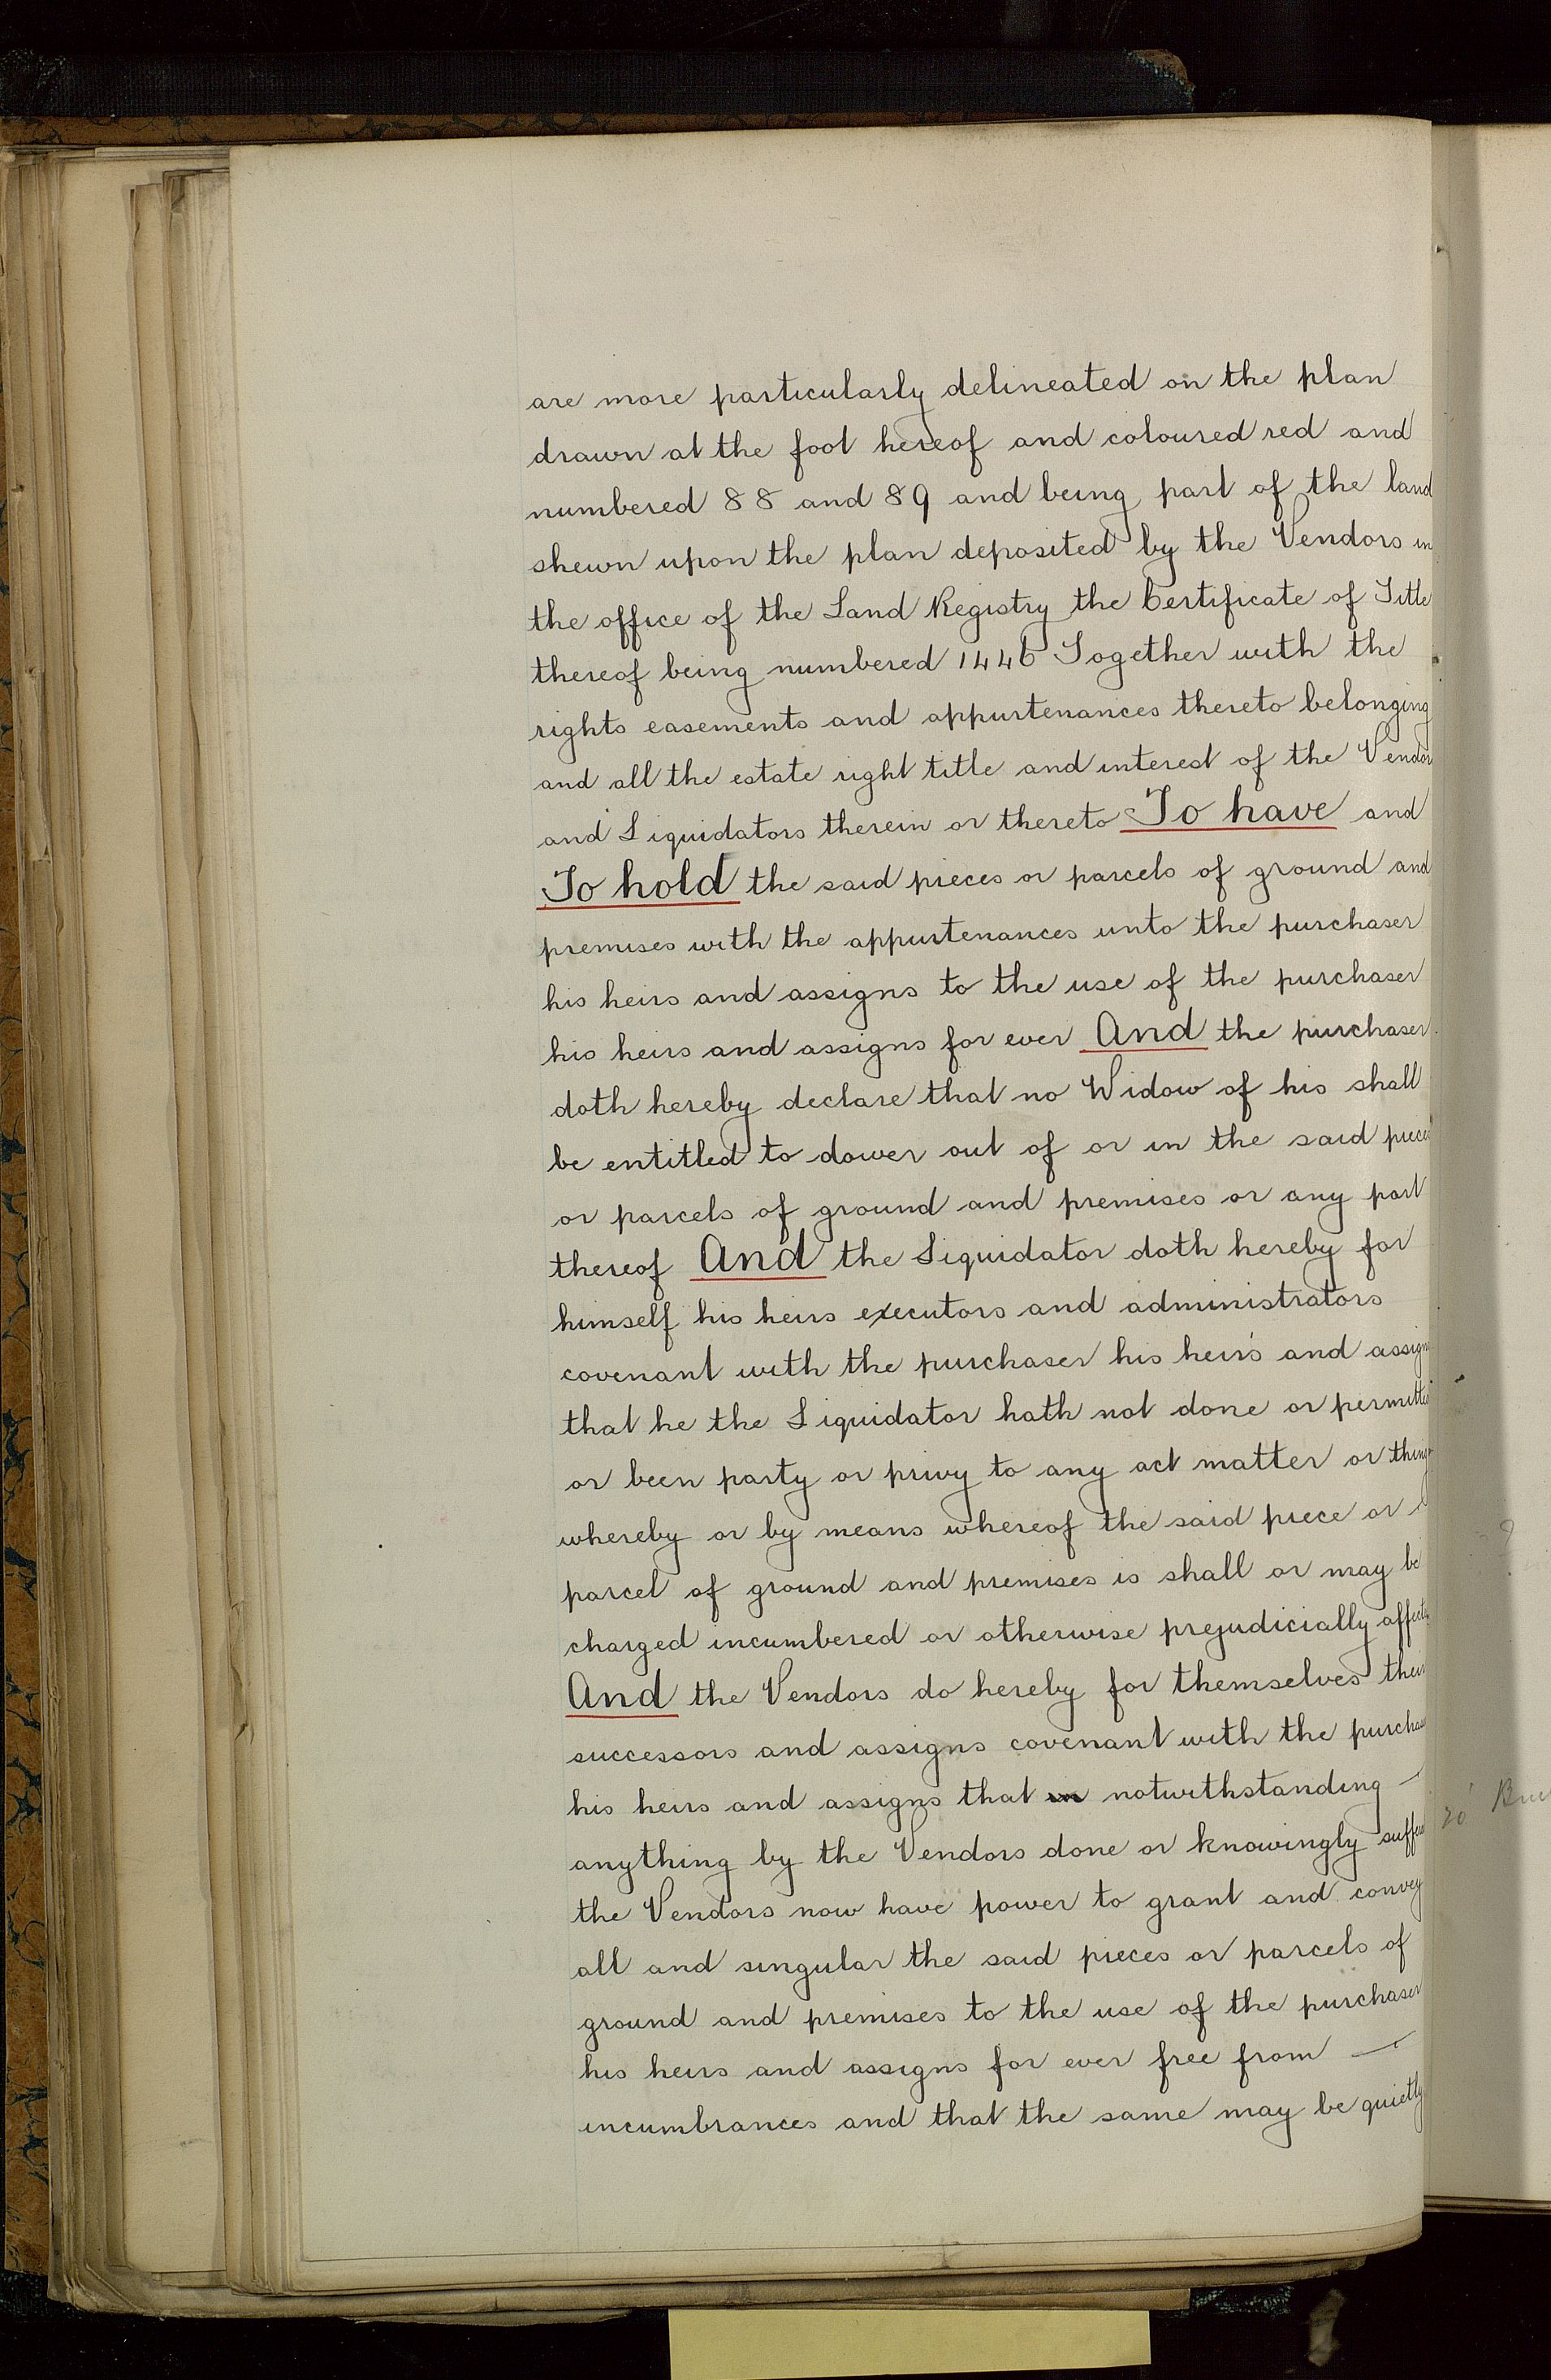 are more particularly delineated on the plan
drawn at the foot hereof and coloured red and
numbered 88 and 89 and being part of the land
shewn upon the plan deposited by the Vendors in
the office of the Land Registry the Certificate of Title
thereof being numbered 1446 Together with the
rights easements and appurtenances thereto belonging
and all the estate right title and interest of the Vendors
and Liquidators therein or thereto To have and
To hold the said pieces or parcels of ground and
premises with the appurtenances unto the purchaser
his heirs and assigns to the use of the purchaser
his heirs and assigns for ever And the purchaser
doth hereby declare that no Widow of his shall
be entitled to dower out of or in the said pieces
or parcels of ground and premises or any part
thereof And the Liquidator doth hereby for
himself his heirs executors and administrators
covenant with the purchaser his heirs and assigns
that he the Liquidator hath not done or permitted
or been party or privy to any act matter or thing
whereby or by means whereof the said piece or
parcel of ground and premises is shall or may be
charged incumbered or otherwise prejudicially
And the Vendors do hereby for themselves their
successors and assigns covenant with the purchaser
his heirs and assigns that in notwithstanding
anything by the Vendors done or knowingly
the Vendors now have power to grant and convey
all and singular the said pieces or parcels of
ground and premises to the use of the purchaser
his heirs and assigns for ever free from
incumbrances and that the same may be quietly